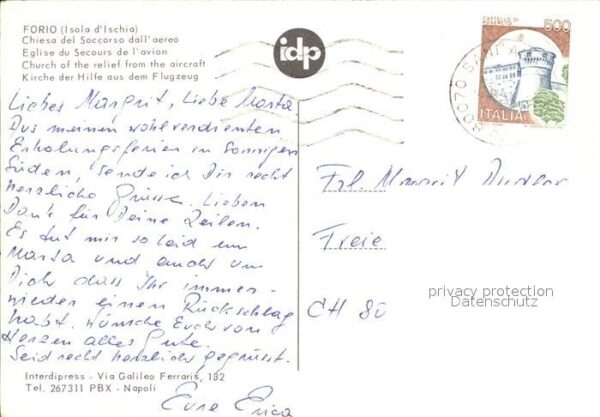 FORIO (Isola d'Ischia)
Chiesa del Soccorso dall'aereo
Eglise du Secours de l'avion
Church of the relief from the aircraft
Kirche der Hilfe aus dem Flugzeug
idp
CASTELLO DI
500
ITALIA
80070 SANT'A
Liebes Margrit, Liebe Marta.
Aus meinen wohlverdienten
Erholungsferien im Sonnigen
Süden, sende ich Dir recht
herzliche Grüsse. Lieben
Dank für Deine Zeilen.
Es tut mir so leid um
Marta und auch um
Dich dass Ihr immer-
wieder einen Rückschlag
habt. Wünsche Euch von
Herzen alles Gute.
Seid recht herzlich gegrüsst.
Eure Erica
Frl. Margrit
Freie
CH 80
privacy protection
Datenschutz
Interdipress - Via Galileo Ferraris, 132
Tel. 267311 PBX - Napoli